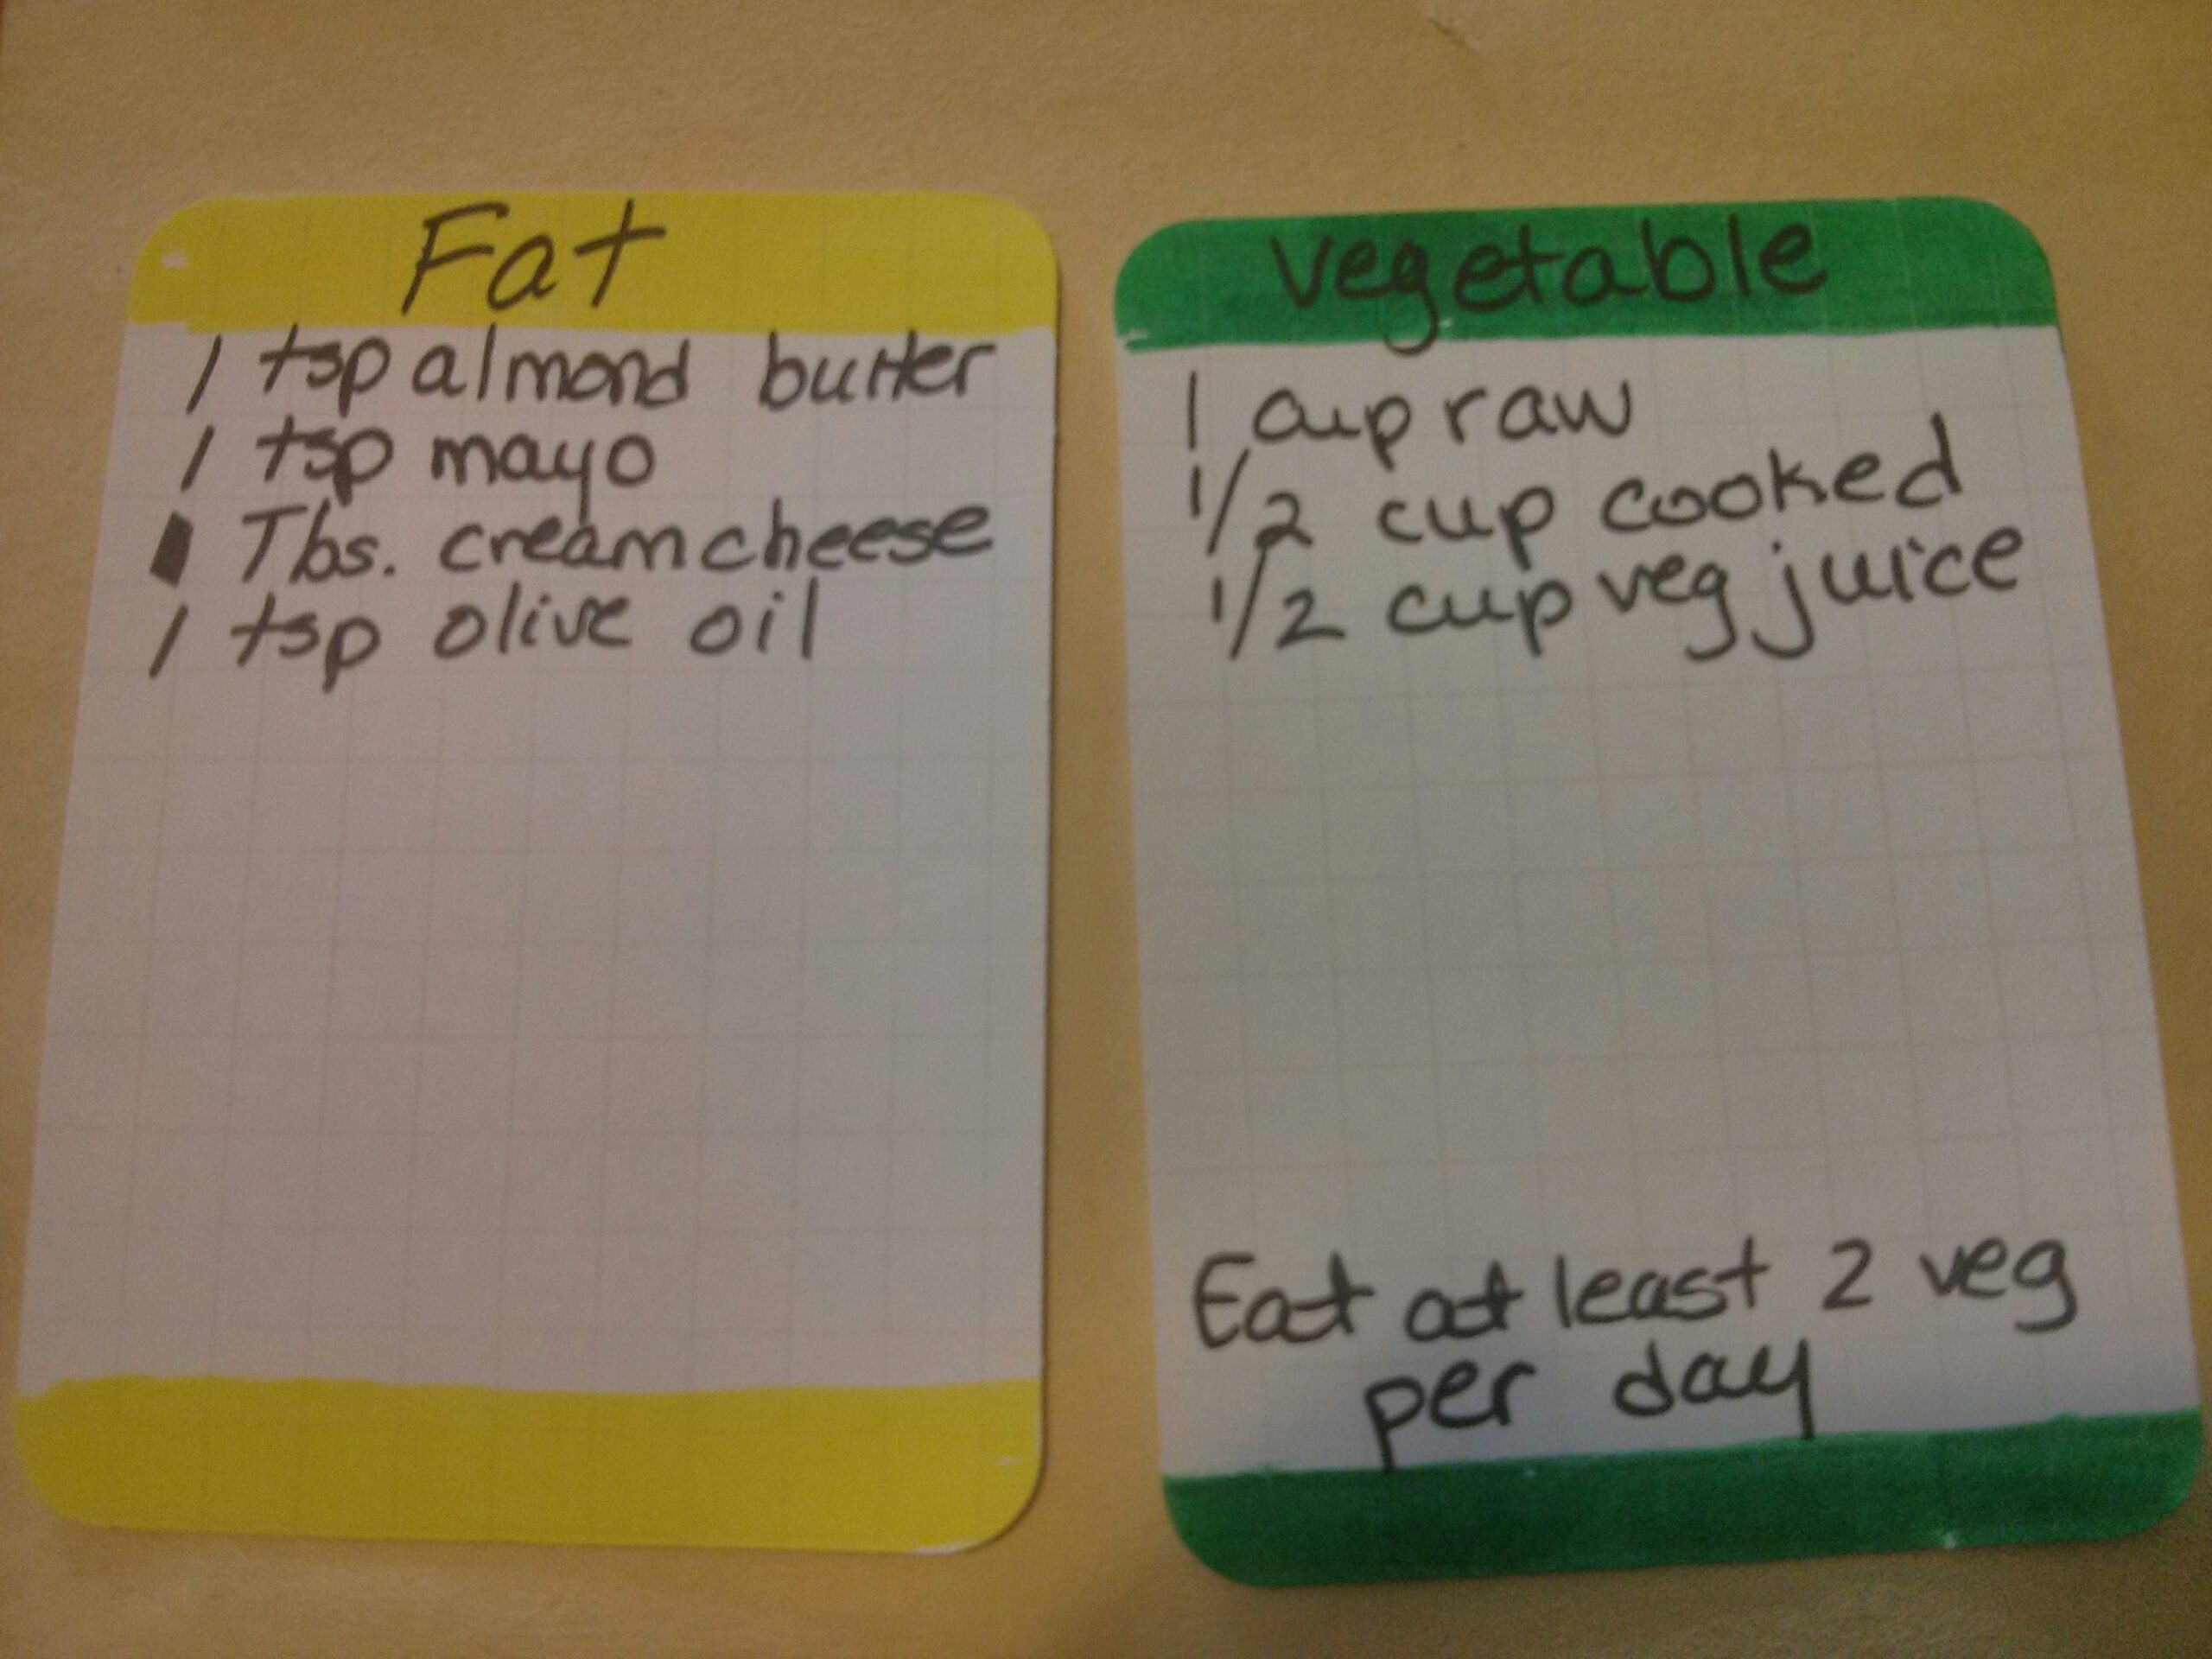 Fat
1 tsp almond butter
1 tsp mayo
Tbs. cream cheese
1 tsp olive oil
vegetable
1 cup raw
1/2 cup cooked
1/2 cup veg juice
Eat at least 2 veg
per day